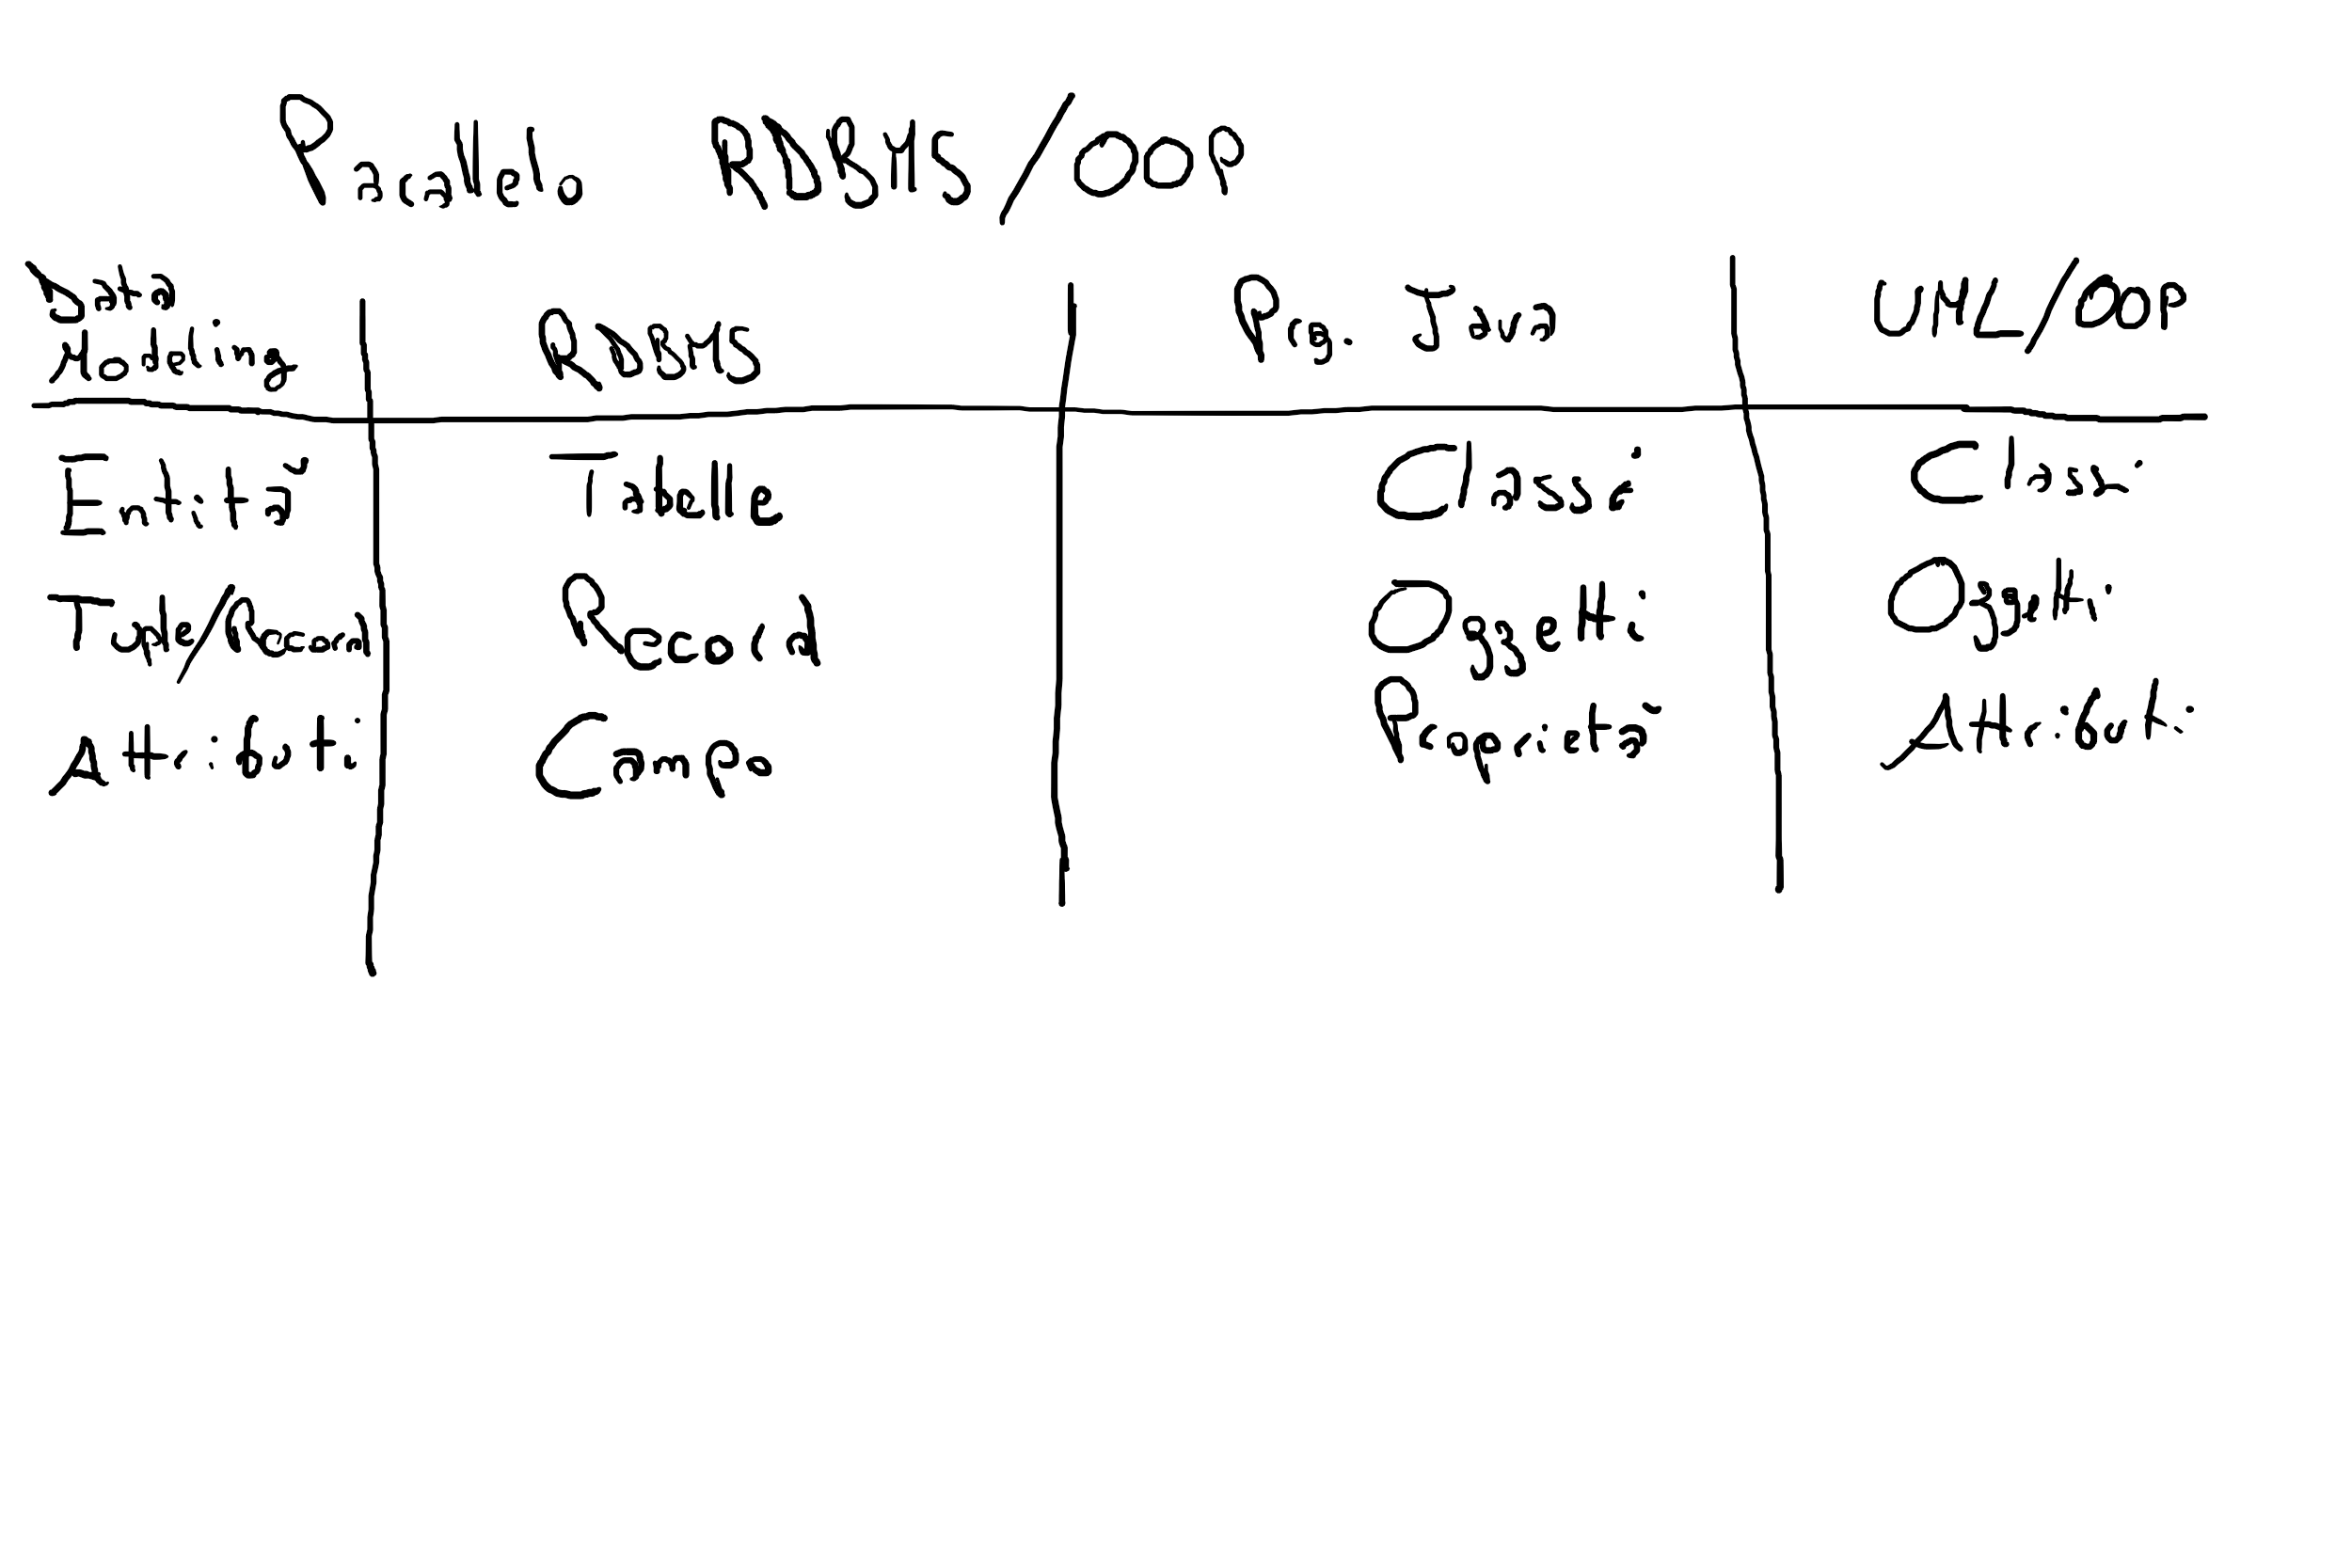 Parallelo RDBMS/OOP
Data Modeling RDBMS Prg. Java UML/OOP
Entità Tabella Classi Classi
Tuple/Record Record Oggetti Oggetti
Attributi Campo Proprietà Attributi